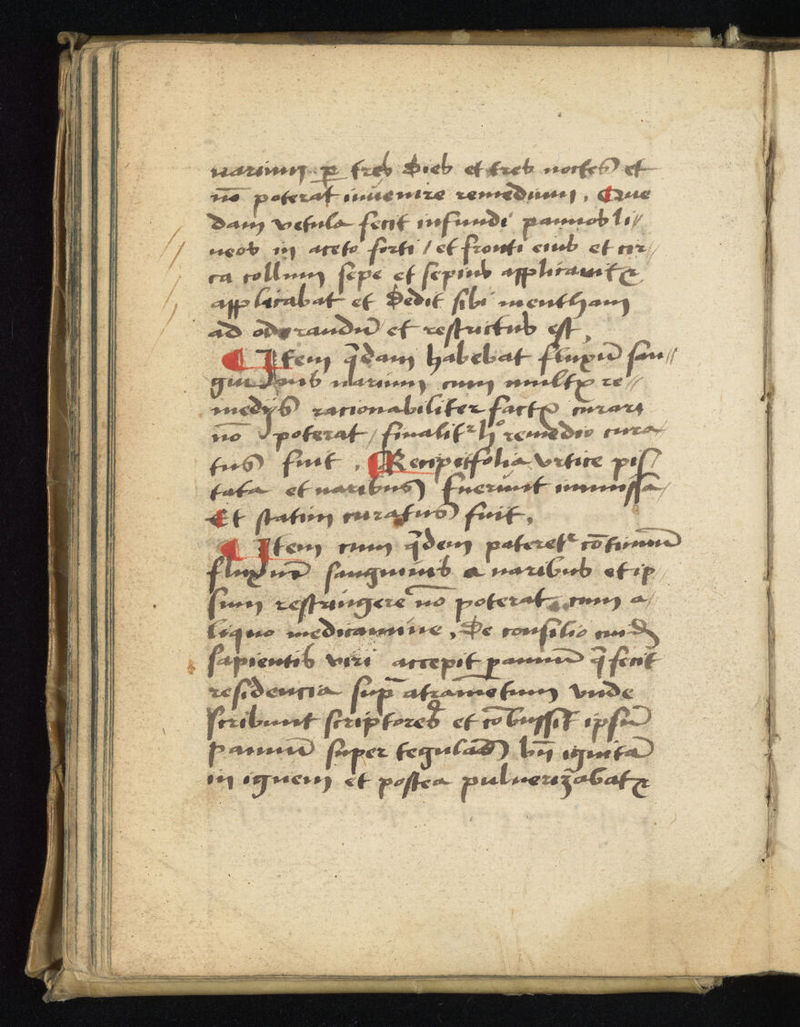 narium p̲ tres dies et tres noctes et
no̅ poterat inuenire remedium, Que
dam vetula fecit infundi pannos li//
neos in aceto forti / et fronti eius et cir//
ca collum sepe et sepius applicauit
applicabat et dedit sibi mentham
ad odorandu̅ et restrictus est,
¶ Item q̅dam habebat fluxu̅ san//
guinis narium cum mult re//
medijs racionabiliter fact curari
no̅ poterat / finalit̛ hͦ remedio cura/
tus fuit, ¶ Recipe folia vrtice pis/
tata et naribus fuerunt inmissa/
Et statim curatus fuit,
¶ Item cum q̅dem pateret̛ co̅tinuu̅
fluxum sanguinis a naribus et ip/
sum restringere no̅ poterat cum a/
liquo medicamine, De consilio cuid
sapientis viri accepit pannu̅ q̅ fecit
residencia sup̅ atrame̅tum vnde
scribunt scriptores et co̅bussit ipsu̅
pannu̅ super tegulas bn̅ ignita̅
in ignem et postea pulverizabat